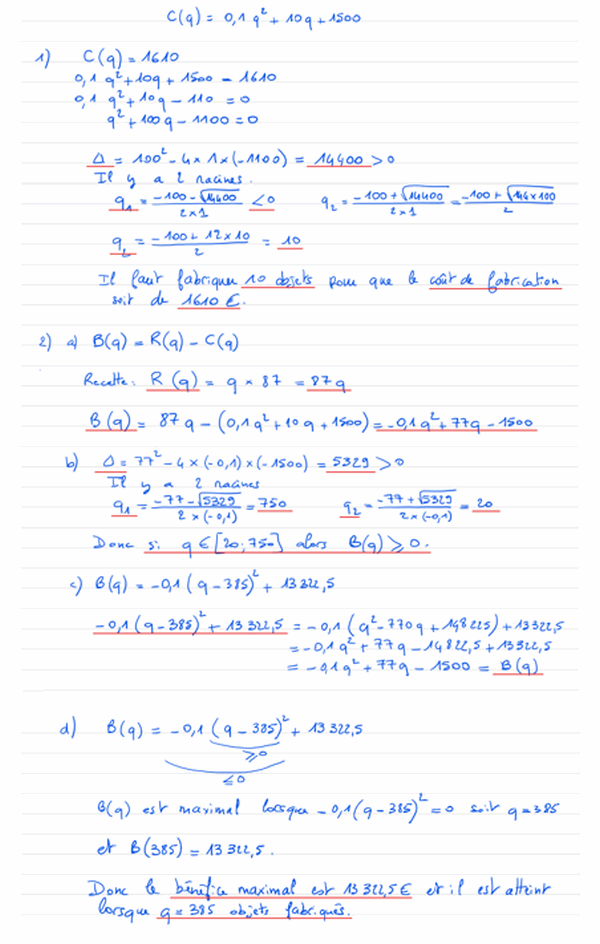 C(q) = 0,1 q² + 10q + 1500
1) C(q) = 1610
0,1 q² + 10q + 1500 = 1610
0,1 q² + 10q - 110 = 0
q² + 100q - 1100 = 0
Δ = 100² - 4 × 1 × (-1100) = 14400 > 0
Il y a 2 racines.
q₁ = (-100 - √14400)/(2×1) < 0 q₂ = (-100 + √14400)/(2×1) = (-100 + √(144×100))/2
q₂ = (-100 + 12×10)/2 = 10
Il faut fabriquer 10 objets pour que le coût de fabrication
soit de 1610 €.
2) a) B(q) = R(q) - C(q)
Recette : R(q) = q × 87 = 87q
B(q) = 87q - (0,1q² + 10q + 1500) = -0,1q² + 77q - 1500
b) Δ = 77² - 4 × (-0,1) × (-1500) = 5329 > 0
Il y a 2 racines
q₁ = (-77 - √5329)/(2×(-0,1)) = 750 q₂ = (-77 + √5329)/(2×(-0,1)) = 20
Donc si q ∈ [20; 750] alors B(q) ≥ 0.
c) B(q) = -0,1(q - 385)² + 13322,5
-0,1(q - 385)² + 13322,5 = -0,1(q² - 770q + 148225) + 13322,5
= -0,1q² + 77q - 14822,5 + 13322,5
= -0,1q² + 77q - 1500 = B(q)
d) B(q) = -0,1(q - 385)² + 13322,5
≥0
≤0
B(q) est maximal lorsque -0,1(q - 385)² = 0 soit q = 385
et B(385) = 13322,5.
Donc le bénéfice maximal est 13322,5€ et il est atteint
lorsque q = 385 objets fabriqués.